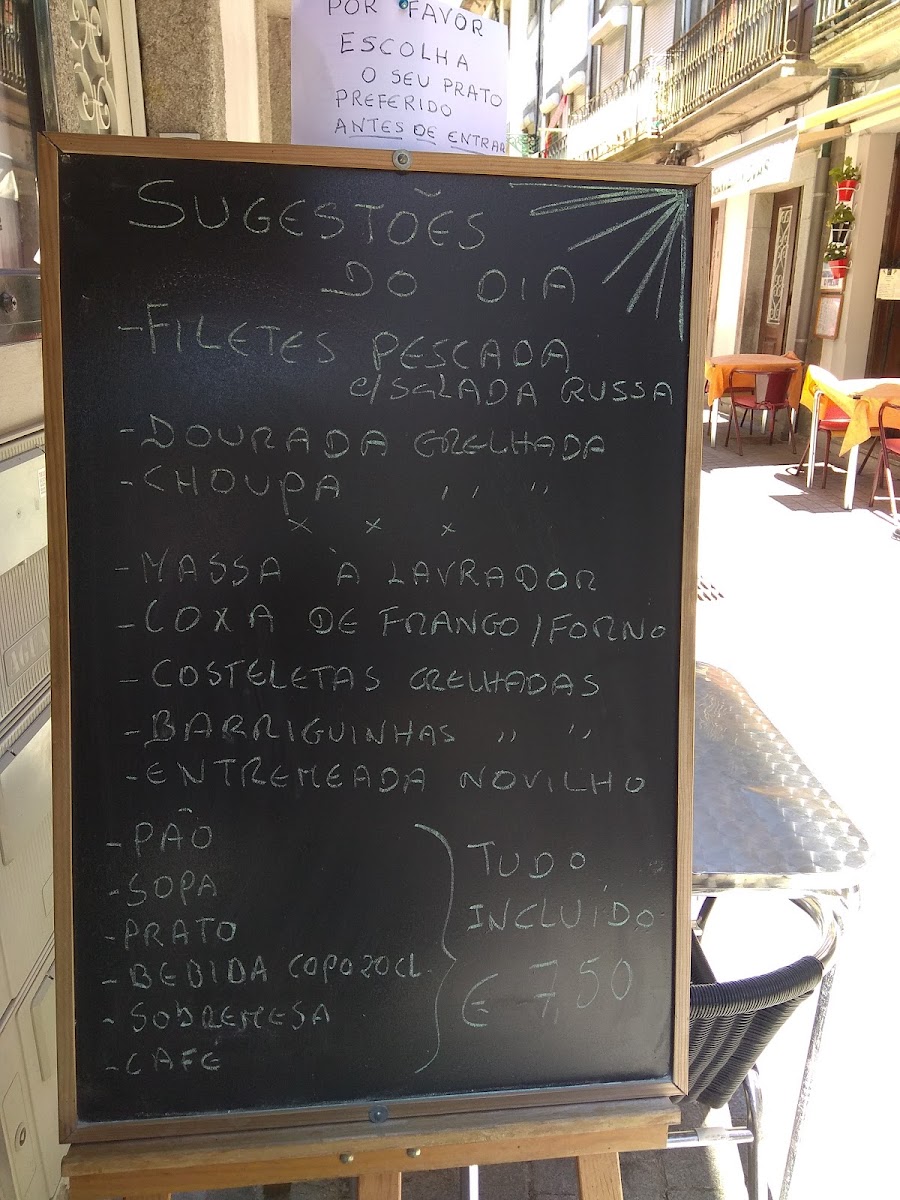 POR FAVOR
ESCOLHA
O SEU PRATO
PREFERIDO
ANTES DE ENTRAR
SUGESTÕES
DO DIA
- FILETES PESCADA
c/SALADA RUSSA
- DOURADA GRELHADA
- CHOUPA ,, ,,
x x x
- MASSA À LAVRADOR
- COXA DE FRANGO/FORNO
- COSTELETAS GRELHADAS
- BARRIGUINHAS ,, ,,
- ENTREMEADA NOVILHO
- PÂO
- SOPA
- PRATO
- BEBIDA COPO 20CL.
- SOBREMESA
- CAFE
TUDO
INCLUÍDO
€ 7,50